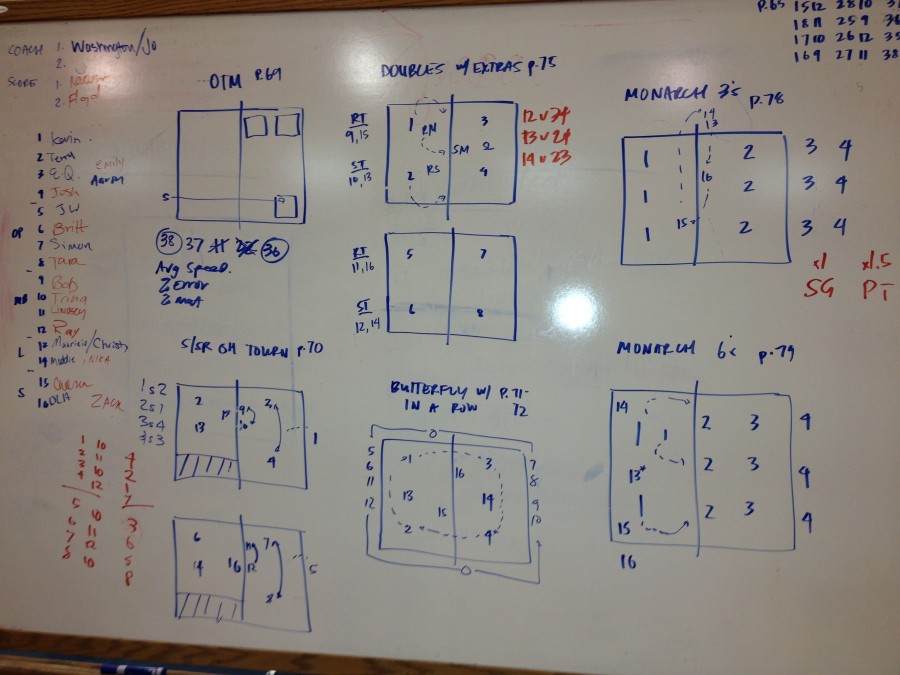 COACH 1. Washington/Jo
2.
SCORE 1.
2. Floyd
1 Kevin
2 Terra
3 E.Q. Emily
Aaron
4 Josh
5 JW
OP 6 Britt
7 Simon
8 Tara
9 Bob
MB 10 Trina
11 Lindsey
12 Ray
L 13 Mauricio/Christy
14 Maddie / NIRA
15
S 16 OLA ZACK
1 10
2 11
3 10
4 12
5 10
6 11
7 12
8 10
4
2
1
7
3
6
5
8
OTM P.69
5
38 37 36
Avg Speed.
2 Error
S/SR OH TOURN P.70
1 s 2
2 s 1
3 s 4
4 s 3
2
13
9
10
2
4
1
6
14
16
12
7
8
5
DOUBLES w/ EXTRAS p.75
RT
9,15
ST
10,13
1 RN 3
SM 2
2 RS 4
12 v 34
13 v 24
14 v 23
RT
11,16
ST
12,14
5 7
6 8
BUTTERFLY W/ P.71-
IN A ROW 72
0
5
6
11
12
1 3
16
13 14
15
2 4
7
8
9
10
0
P.65 1512 2810
18 11 259
1710 2612
169 2711 38
MONARCH 3's P.78
14
13
1 2 3 4
16
1 2 3 4
15
1 2 3 4
x1 x1.5
SG PT
MONARCH 6's p.79
14
1 1 2 3 4
13* 2 3 4
1 2 3 4
15
16